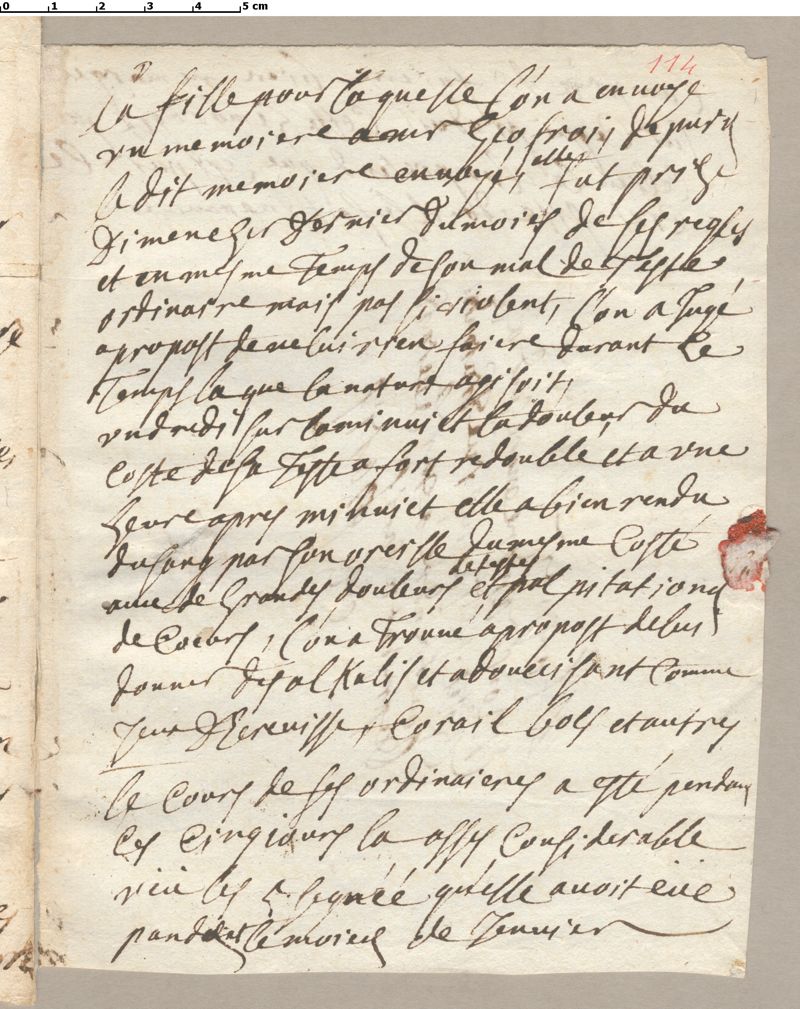 0 1 2 3 4 5 cm
114
la fille pour laquelle l'on a envoye
vn memoiere a mr Geofrai, depuis
le dit memoiere envoyé, elle fut prise
dimenche dernier du moies de ses regles
et en mesme temps de son mal de teste
ordinaire mais pas si violent, l'on a Jugé
apropost de ne luis rien faiere durant ce
temps la que la nature agisoit,
vndredi sur la minuiet la douleur du
coste de sa teste a fort redouble et a vne
heure apres minuiet elle a bien rendu
du sang par son oreille du mesme Costé
auec de grandes douleurs de teste et palpitations
de Coeurs, l'on a trouué apropost de lui
donner des alkalis et adoucisant Comme
yeux d'Ecrevisse, Corail bols et autres
le Cours de ses ordinaieres a esté pendant
Ces Cinq iours la asses Considerable
veu les signéé qu'elle auoit eüe
pandant le moies de Jenuier